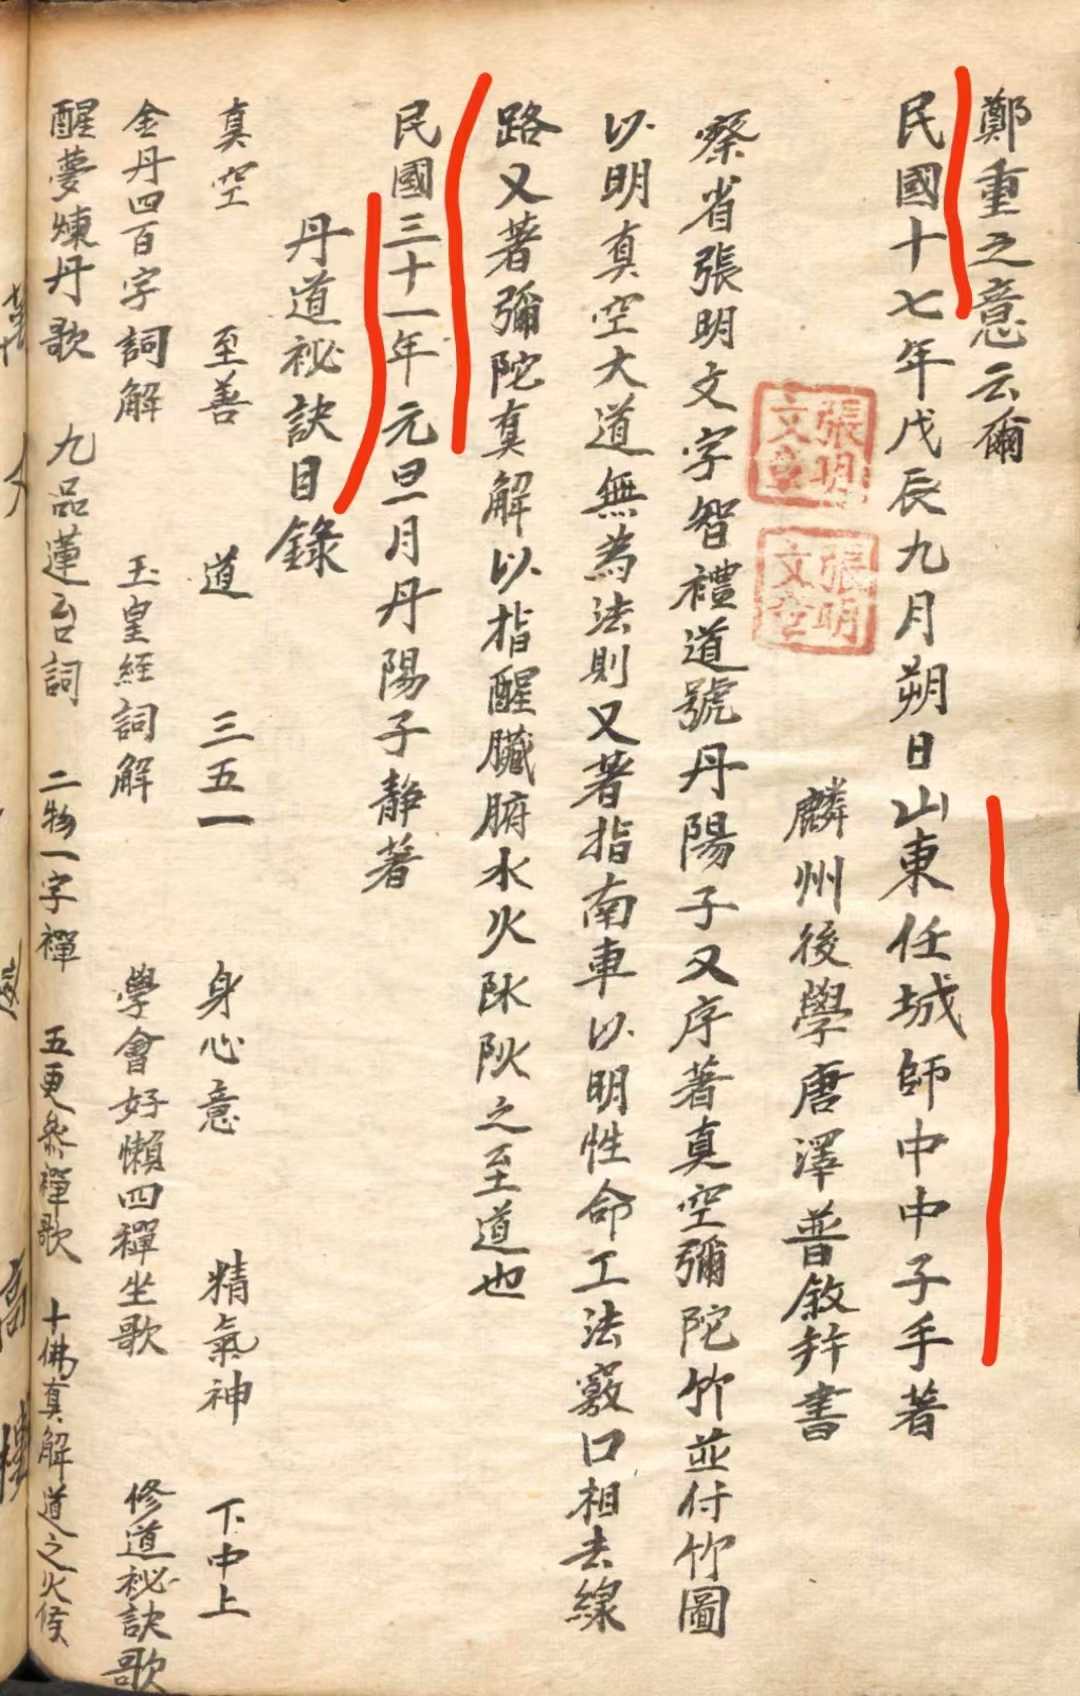 鄭重之意云爾
民國十七年戊辰九月朔日山東任城師中中子手著
麟州後學唐澤普敘并書
張明文章
張明文章
察省張明文字智禮道號丹陽子又序著真空彌陀竹並付竹圖
以明真空大道無為法則又著指南車以明性命工法竅口相去線
路又著彌陀真解以指醒臟腑水火阥阦之至道也
民國三十一年元旦月丹陽子靜著
丹道祕訣目錄
真空 至善 道 三五一 身心意 精氣神 下中上
金丹四百字詞解 玉皇經詞解 學會好懶四禪坐歌 修道祕訣歌
醒夢煉丹歌 九品蓮台詞 二物一字禪 五更參禪歌 十佛真解道之火候